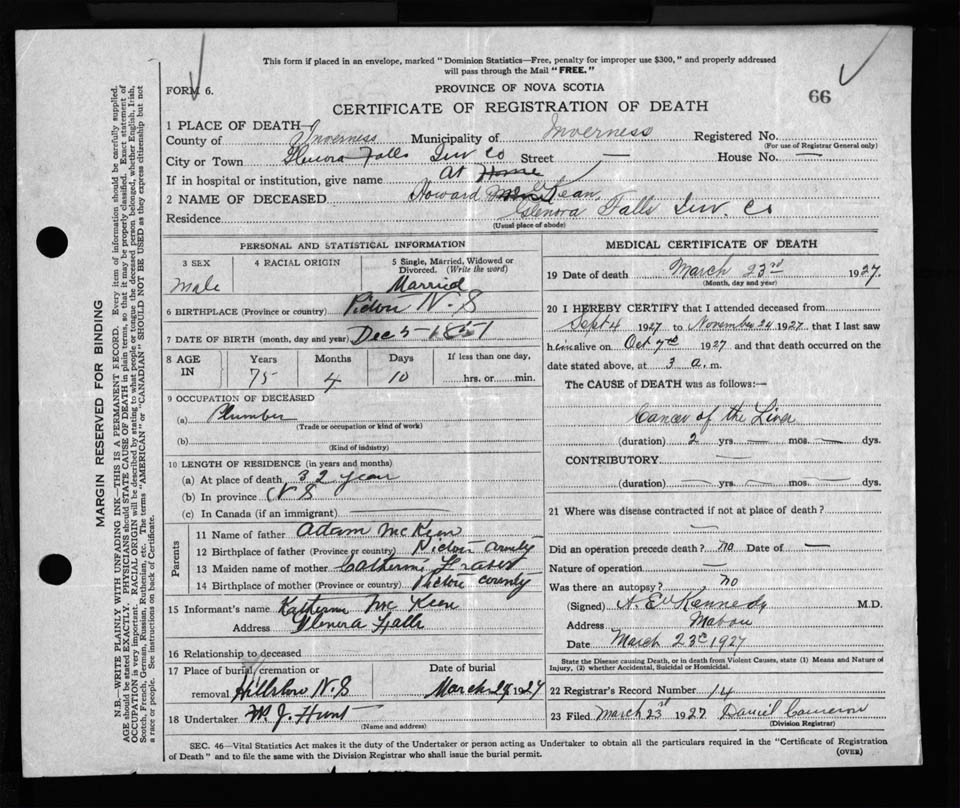 This form if placed in an envelope, marked "Dominion Statistics—Free, penalty for improper use $300," and properly addressed
will pass through the Mail "FREE."
FORM 6.
PROVINCE OF NOVA SCOTIA
66
CERTIFICATE OF REGISTRATION OF DEATH
1 PLACE OF DEATH—
County of Inverness Municipality of Inverness Registered No.
(For use of Registrar General only)
City or Town Glenora Falls Inv Co Street — House No. —
If in hospital or institution, give name At Home
2 NAME OF DECEASED Howard
Residence Glenora Falls Inv. Co
(Usual place of abode)
PERSONAL AND STATISTICAL INFORMATION
3 SEX 4 RACIAL ORIGIN 5 Single, Married, Widowed or
Divorced. (Write the word)
Male Married
6 BIRTHPLACE (Province or country) Pictou N.S
7 DATE OF BIRTH (month, day and year) Dec 5—1851
8 AGE IN Years Months Days If less than one day,
75 4 10 hrs. or min.
9 OCCUPATION OF DECEASED
(a) Plumber
(Trade or occupation or kind of work)
(b)
(Kind of industry)
10 LENGTH OF RESIDENCE (in years and months)
(a) At place of death 32 year
(b) In province N S
(c) In Canada (if an immigrant)
Parents
11 Name of father Adam McKeen
12 Birthplace of father (Province or country) Pictou County
13 Maiden name of mother Catherine Fraser
14 Birthplace of mother (Province or Country) Pictou County
15 Informant's name Katherine McKeen
Address Glenora Falls
16 Relationship to deceased
17 Place of burial, cremation or Date of burial
removal Hillsboro N.S March 1927
18 Undertaker J. Hunt
(Name and address)
MEDICAL CERTIFICATE OF DEATH
19 Date of death March 23rd 1927.
(Month, day and year)
20 I HEREBY CERTIFY that I attended deceased from
Sept 4 1927 to November 24 1927, that I last saw
him alive on Oct 7th 1927 and that death occurred on the
date stated above, at 3 a. m.
The CAUSE of DEATH was as follows:—
Cancer of the Liver
(duration) 2 yrs. — mos. — dys.
CONTRIBUTORY. —
(duration) — yrs. — mos. — dys.
21 Where was disease contracted if not at place of death?
—
Did an operation precede death? no Date of —
Nature of operation —
Was there an autopsy? no
(Signed) Kennedy M.D.
Address Mabou
Date March 23 1927
State the Disease causing Death, or in death from Violent Causes, state (1) Means and Nature of
Injury, (2) whether Accidental, Suicidal or Homicidal.
22 Registrar's Record Number 14
23 Filed March 23 1927 Daniel Cameron
(Division Registrar)
SEC. 46—Vital Statistics Act makes it the duty of the Undertaker or person acting as Undertaker to obtain all the particulars required in the "Certificate of Registration
of Death" and to file the same with the Division Registrar who shall issue the burial permit.
(OVER)
MARGIN RESERVED FOR BINDING
N.B.—WRITE PLAINLY WITH UNFADING INK—THIS IS A PERMANENT RECORD. Every item of information should be carefully supplied.
AGE should be stated EXACTLY. PHYSICIANS should STATE CAUSE OF DEATH in plain terms, so that it may be properly classified. Exact statement of
OCCUPATION is very important. RACIAL ORIGIN will be described by stating to what people or tongue the deceased person belonged, whether English, Irish,
Scotch, French, German, Russian, Ruthenian, etc. The terms "AMERICAN" or "CANADIAN" SHOULD NOT BE USED as they express citizenship but not
a race or people. See instructions on back of Certificate.